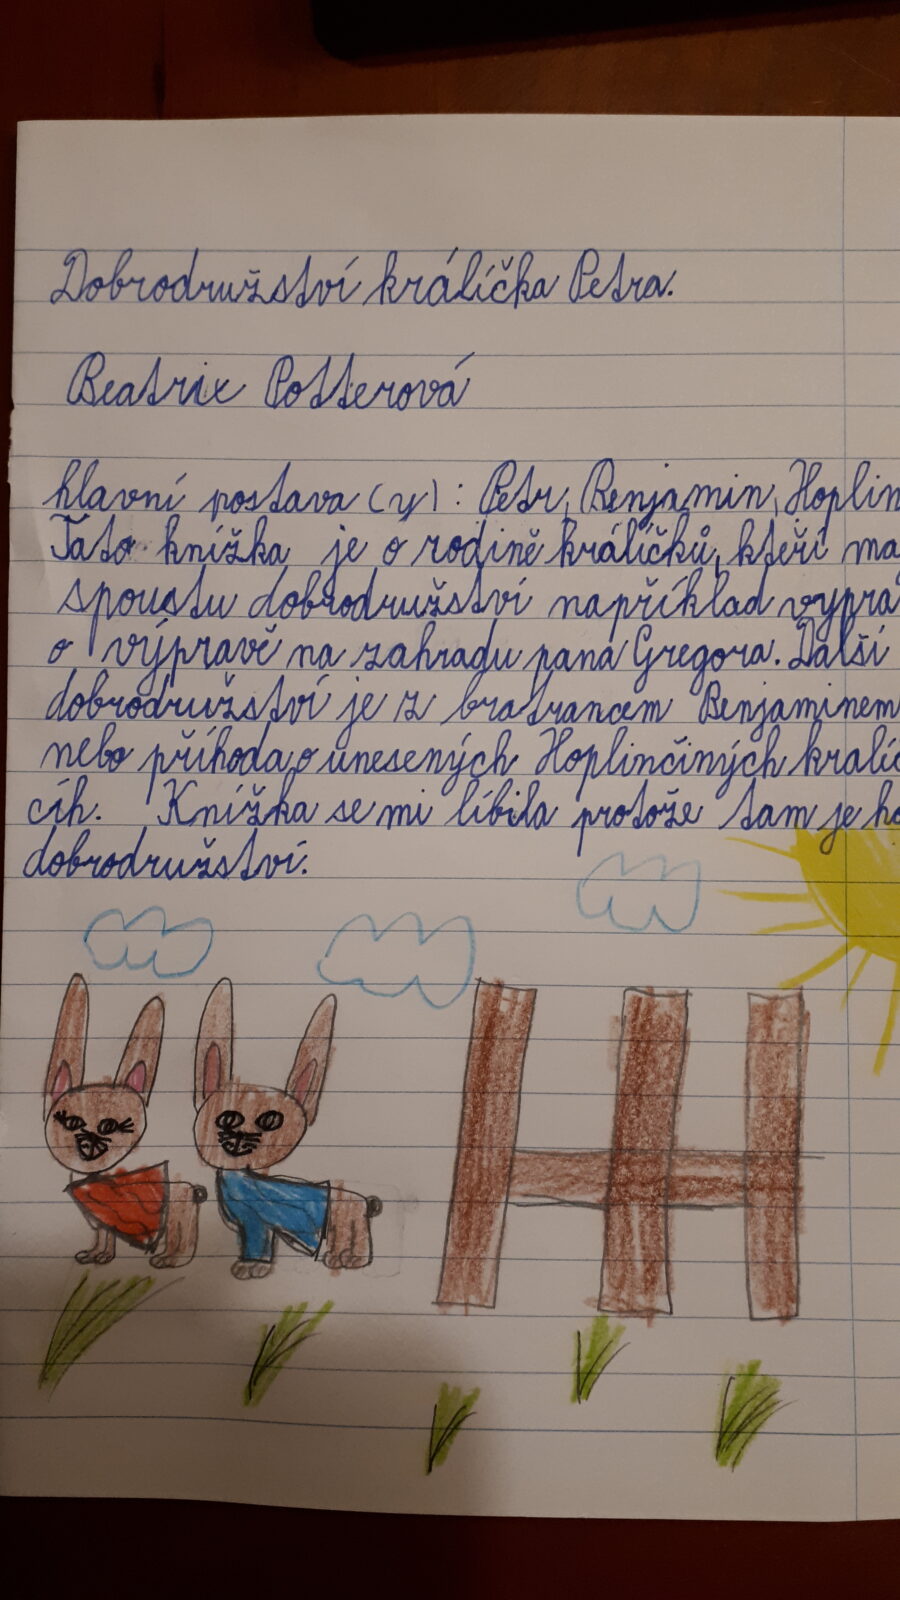 Dobrodružství králíčka Petra.
Beatrix Potterová
hlavní postava (y) : Petr, Benjamin, Hoplin
Tato knížka je o rodině králíčků, kteří ma
spoustu dobrodružství například vyprá
o výpravě na zahradu pana Gregora. Další
dobrodružství je z bratrancem Benjaminem
nebo příhoda o unesených Hoplinčiných kralíč
cíh. Knížka se mi líbila protože tam je ho
dobrodružství.